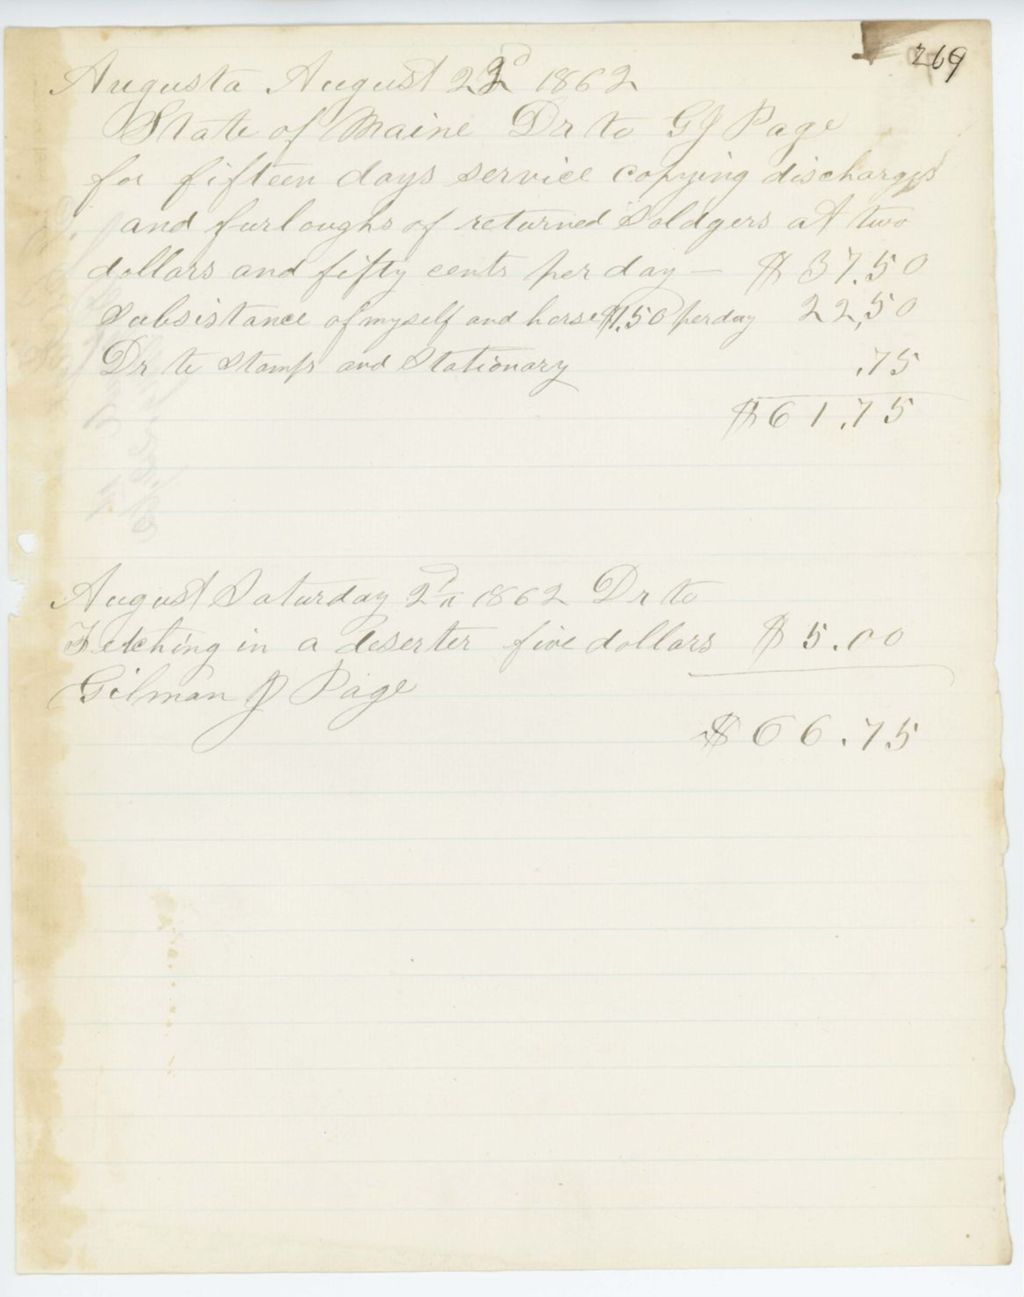 269
Augusta August 22d 1862
State of Maine Dr to G J Page
for fifteen days service copying discharges
and furloughs of returned Soldgers at two
dollars and fifty cents per day — $37.50
Subsistance of myself and horse $1.50 per day 22,50
Dr to Stamps and Stationary .75
$61.75
August Saturday 2d 1862 Dr to
Fetching in a deserter five dollars $5.00
Gilman J Page
$66.75